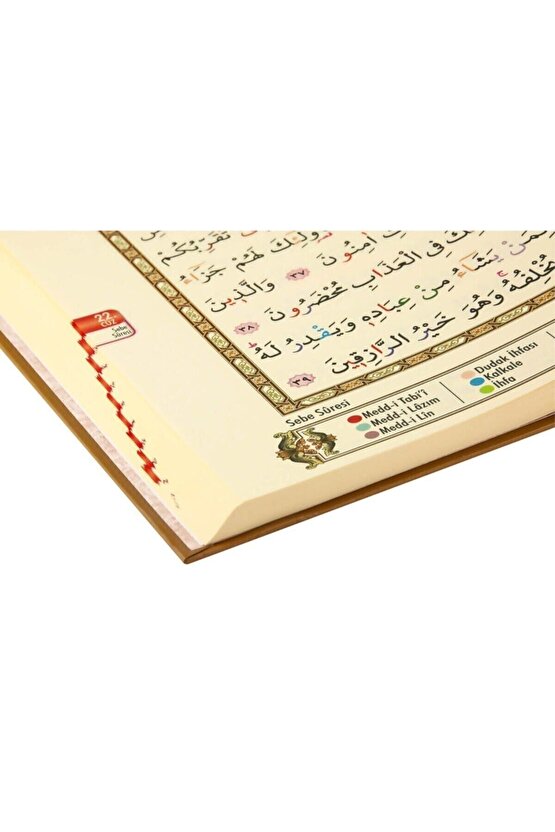 تُقَرِّبُكُمْ
لَهُمْ جَزَٓاءُ
اٰمِنُونَ ٣٧ وَالَّذ۪ينَ
فِي الْعَذَابِ مُحْضَرُونَ ٣٨
يَشَٓاءُ مِنْ عِبَادِه۪ وَيَقْدِرُ لَهُ
يُخْلِفُهُ وَهُوَ خَيْرُ الرَّازِق۪ينَ ٣٩
22.
CÜZ
Sebe
Sûresi
Sebe Sûresi
Medd-i Tabi'î
Medd-i Lâzım
Medd-i Lîn
Dudak İhfası
Kalkale
İhfa